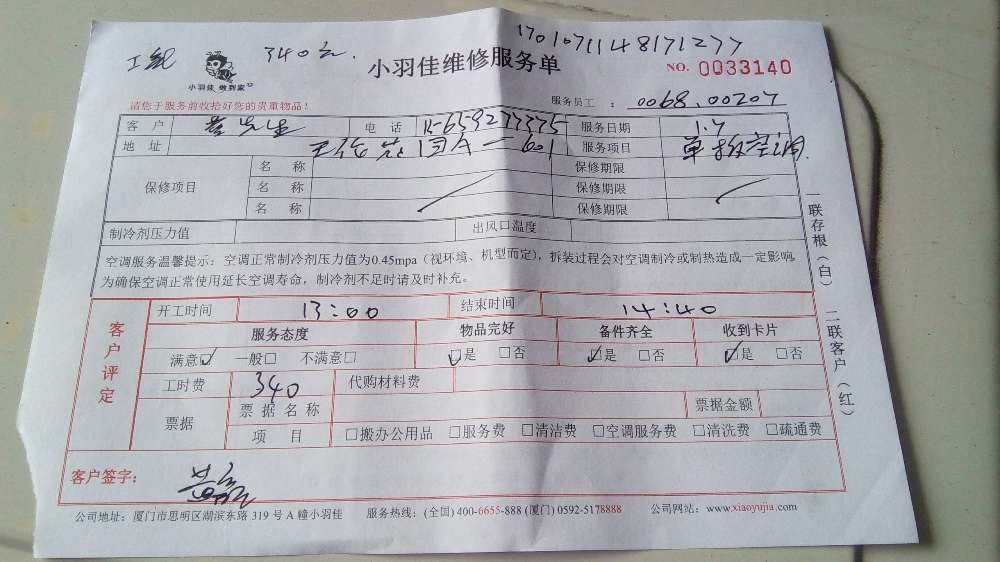 340元
1701071148171277
小羽佳 做到家
小羽佳维修服务单
NO. 0033140
请您于服务前收拾好您的贵重物品！
服务员工： 0068.00207
客 户 黄先生 电 话 15659277375 服务日期 1.7
地 址 601 服务项目 单移空调
保修项目
名 称 保修期限
名 称 保修期限
名 称 保修期限
制冷剂压力值 出风口温度
空调服务温馨提示：空调正常制冷剂压力值为0.45mpa（视环境、机型而定），拆装过程会对空调制冷或制热造成一定影响，
为确保空调正常使用延长空调寿命，制冷剂不足时请及时补充。
一联存根（白） 二联客户（红）
客户评定
开工时间 13:00 结束时间 14:40
服务态度 物品完好 备件齐全 收到卡片
满意☑ 一般□ 不满意□ ☑是 □否 ☑是 □否 ☑是 □否
工时费 340 代购材料费
票据 票据名称 票据金额
项 目 □搬办公用品 □服务费 □清洁费 □空调服务费 □清洗费 □疏通费
客户签字：
公司地址：厦门市思明区湖滨东路 319 号 A 幢小羽佳 服务热线：(全国) 400-6655-888 (厦门) 0592-5178888 公司网站：www.xiaoyujia.com